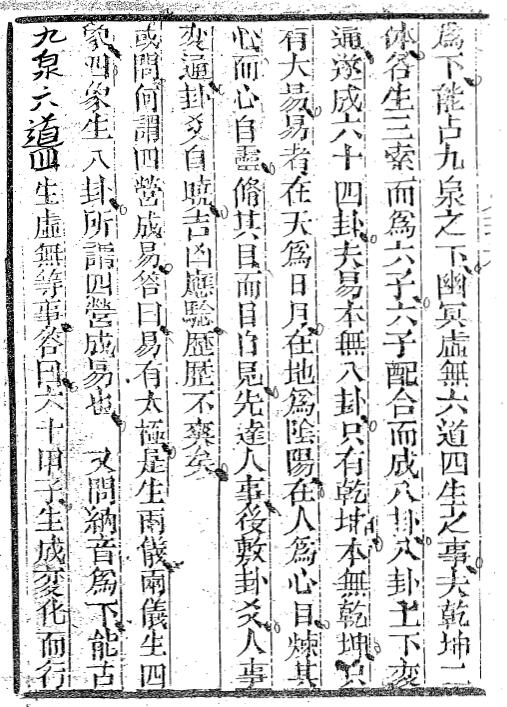 爲下能占九泉之下幽冥虛無六道四生之事夫乾坤二
体各生三索而爲六子六子配合而成八卦八卦上下変
通遂成六十四卦夫易本無八卦只有乾坤本無乾坤只
有大易易者在天爲日月在地爲陰陽在人爲心目煉其
心而心自靈脩其目而目自見先達人事後敷卦爻人事
変通卦爻自曉吉凶應驗歷歷不爽矣
或問何謂四營成易答曰易有太極是生兩儀兩儀生四
象四象生八卦所謂四營成易也 又問納音爲下能占
九泉六道四生虛無等事答曰六十甲子生成変化而行